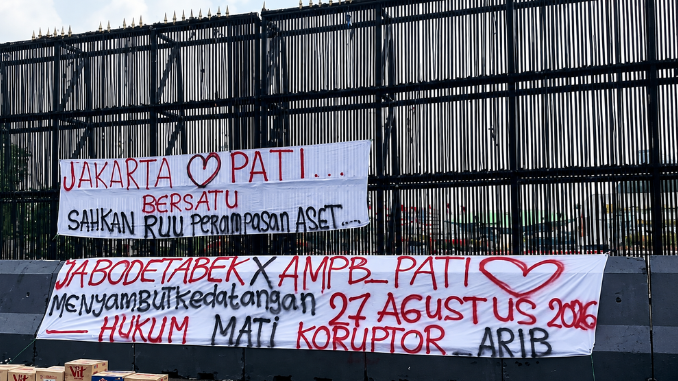 JAKARTA ♡ PATI...
BERSATU
SAHKAN RUU PERAMPASAN ASET....
JABODETABEK X AMPB_PATI ♡
MENYAMBUT KEDATANGAN 27 AGUSTUS 2026
— HUKUM MATI KORUPTOR _ARIB
Vit
Vit